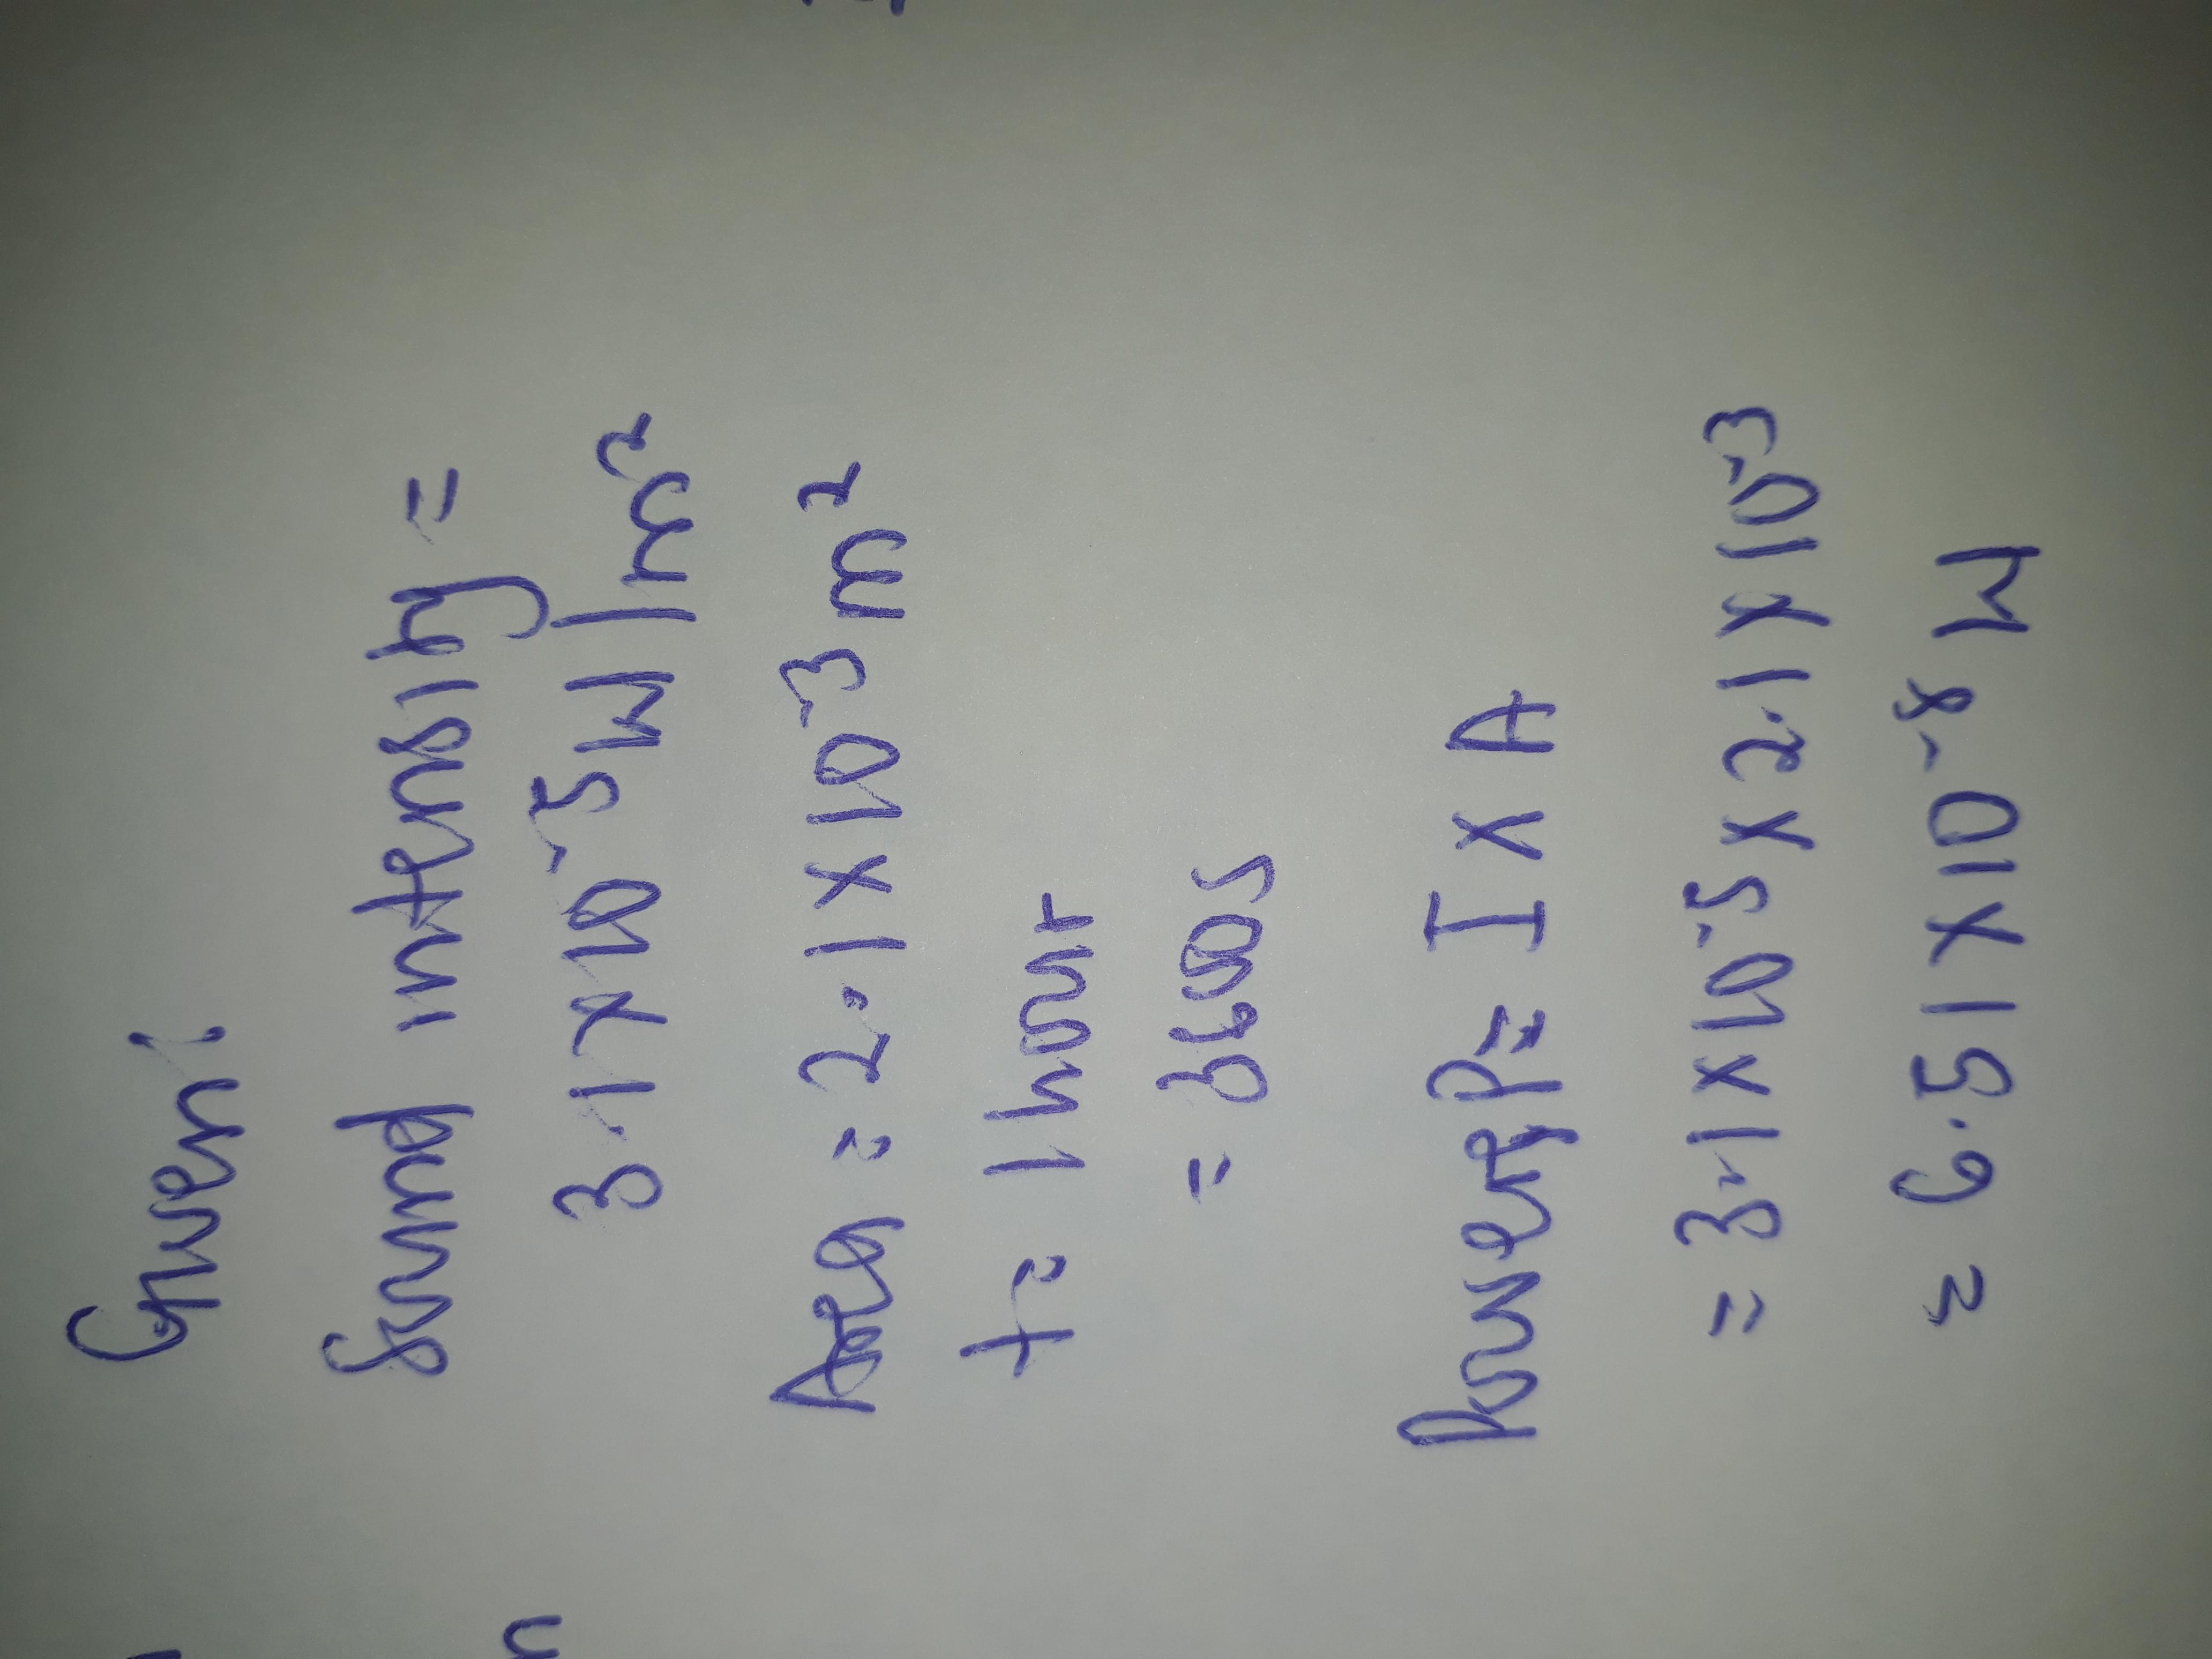 Given:
Sound intensity =
3.1 x 10^-5 W/m²
Area = 2.1 x 10^-3 m²
t = 1 hour
= 3600s
Power, P = I x A
= 3.1 x 10^-5 x 2.1 x 10^-3
= 6.51 x 10^-8 W